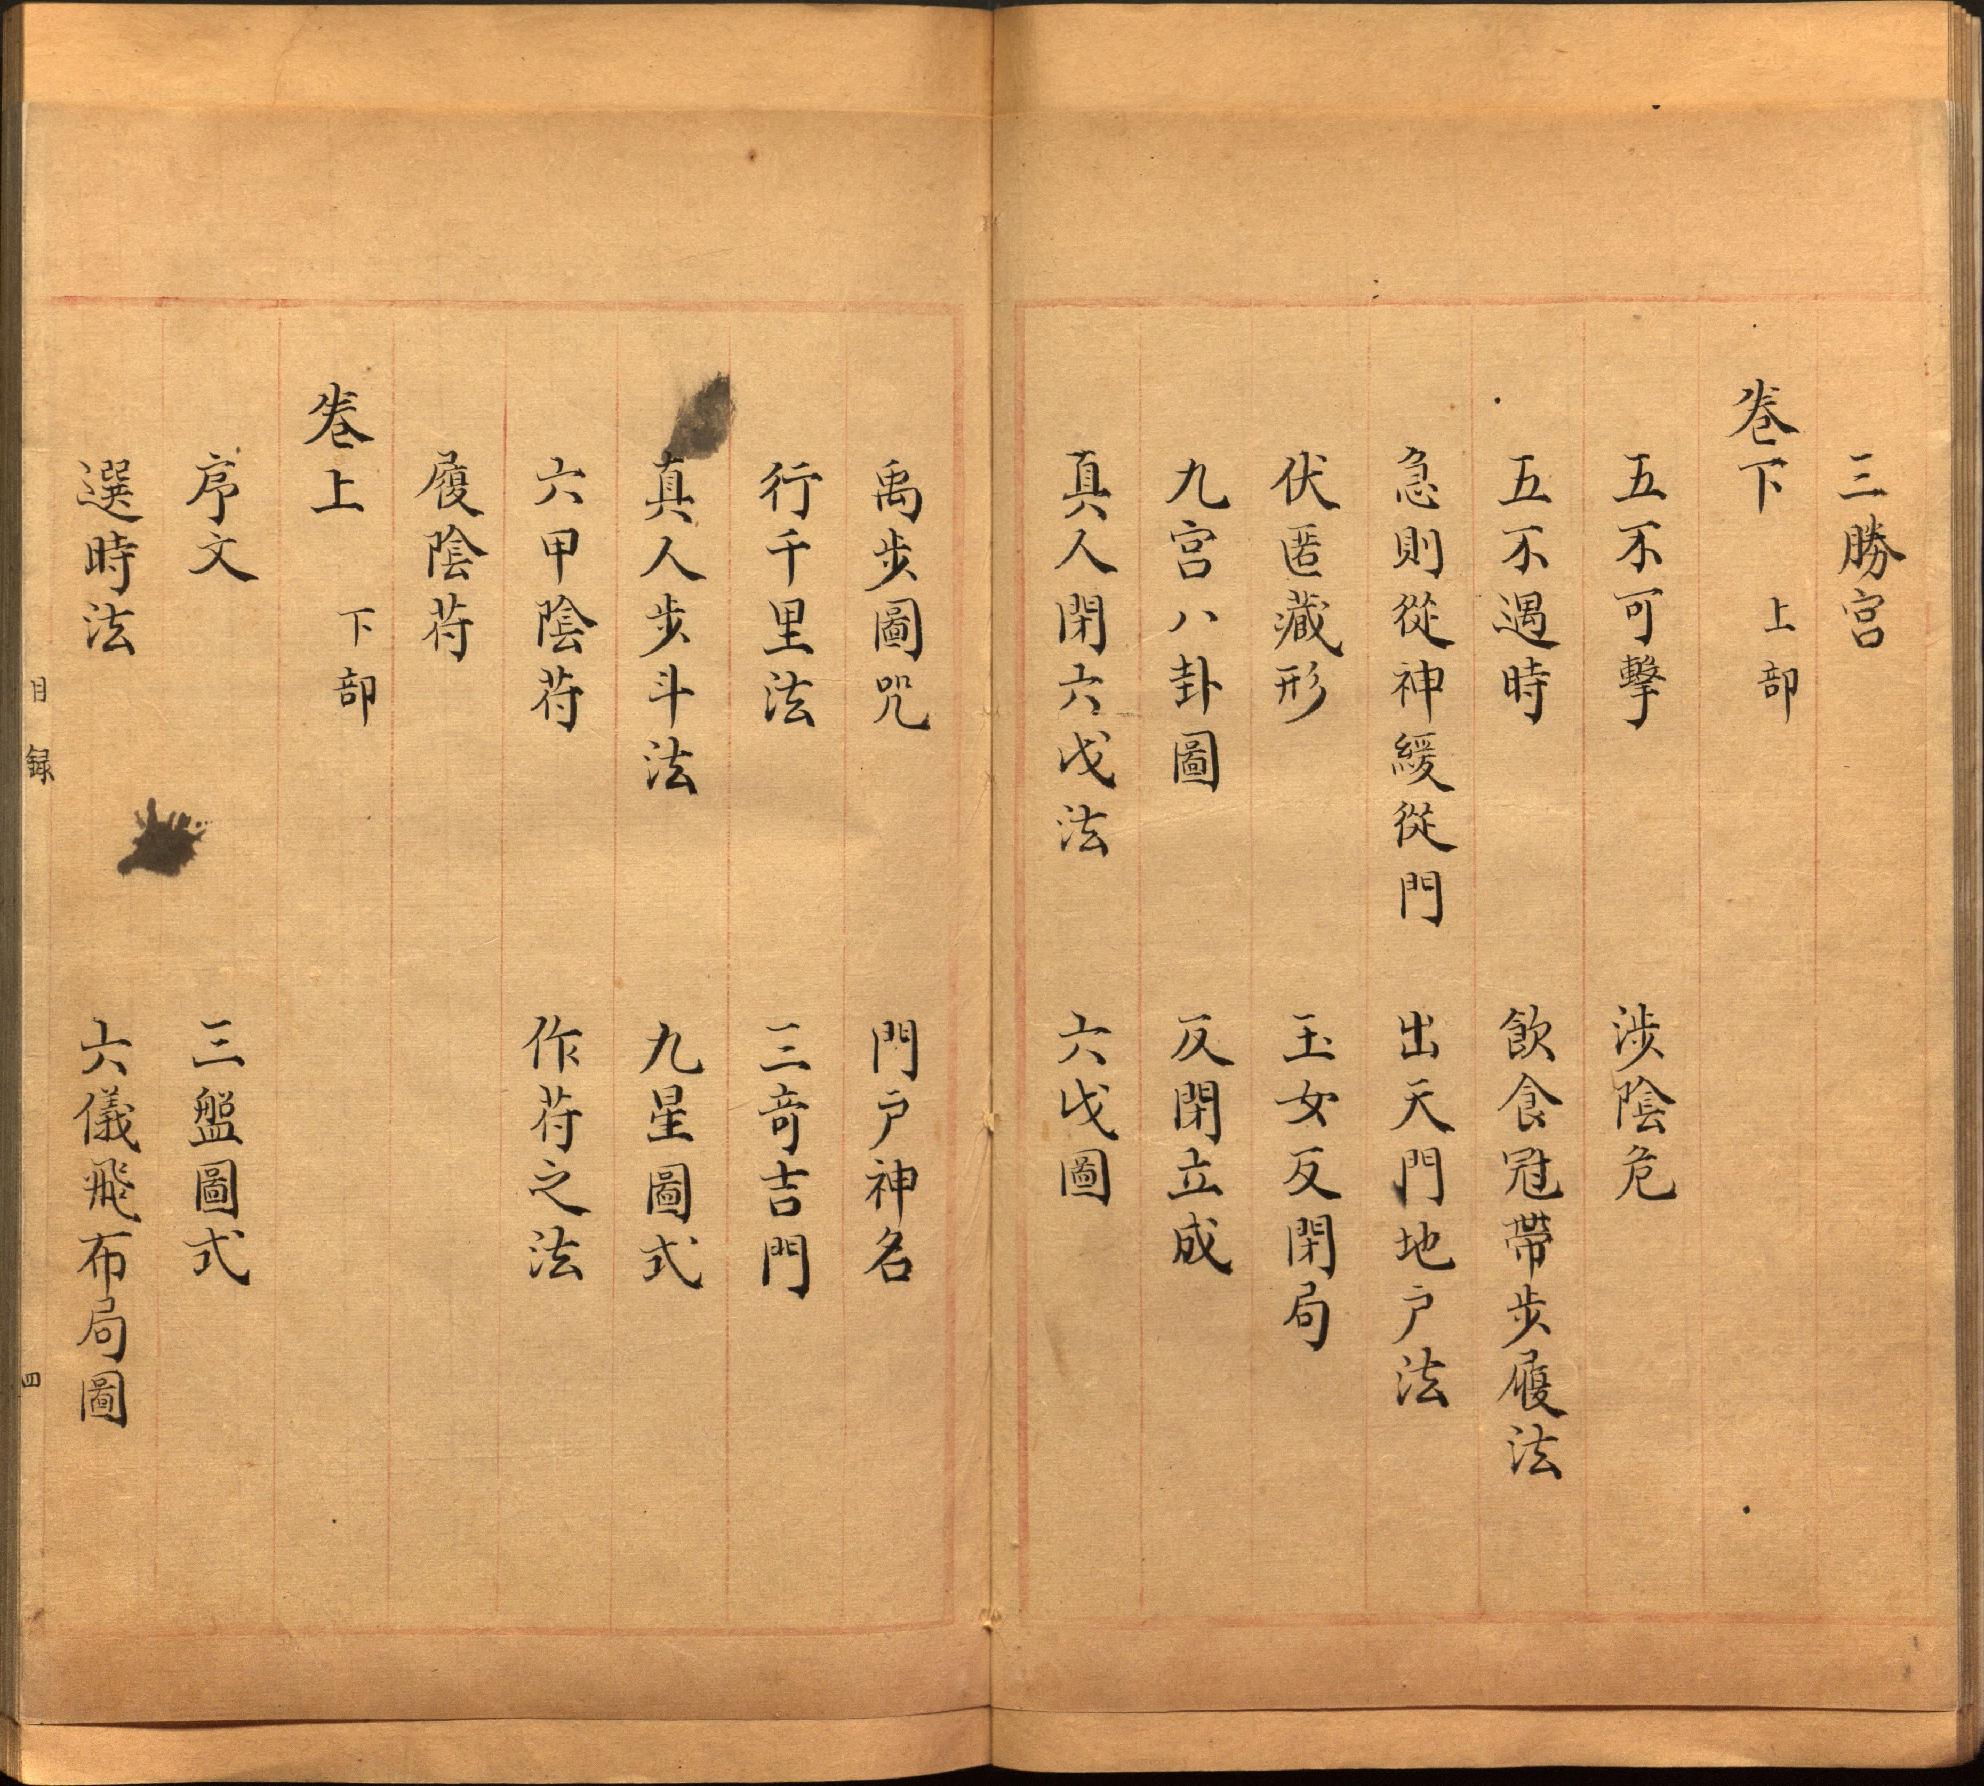 三勝宮
卷下　上部
五不可擊　涉陰危
五不遇時　飲食冠帶步履法
急則從神緩從門　出天門地户法
伏匿藏形　玉女反閉局
九宮八卦圖　反閉立成
真人閉六戊法　六戊圖
禹步圖咒　門户神名
行千里法　三奇吉門
真人步斗法　九星圖式
六甲陰苻　作苻之法
履陰苻
卷上　下部
序文　三盤圖式
選時法　六儀飛布局圖
目録　四